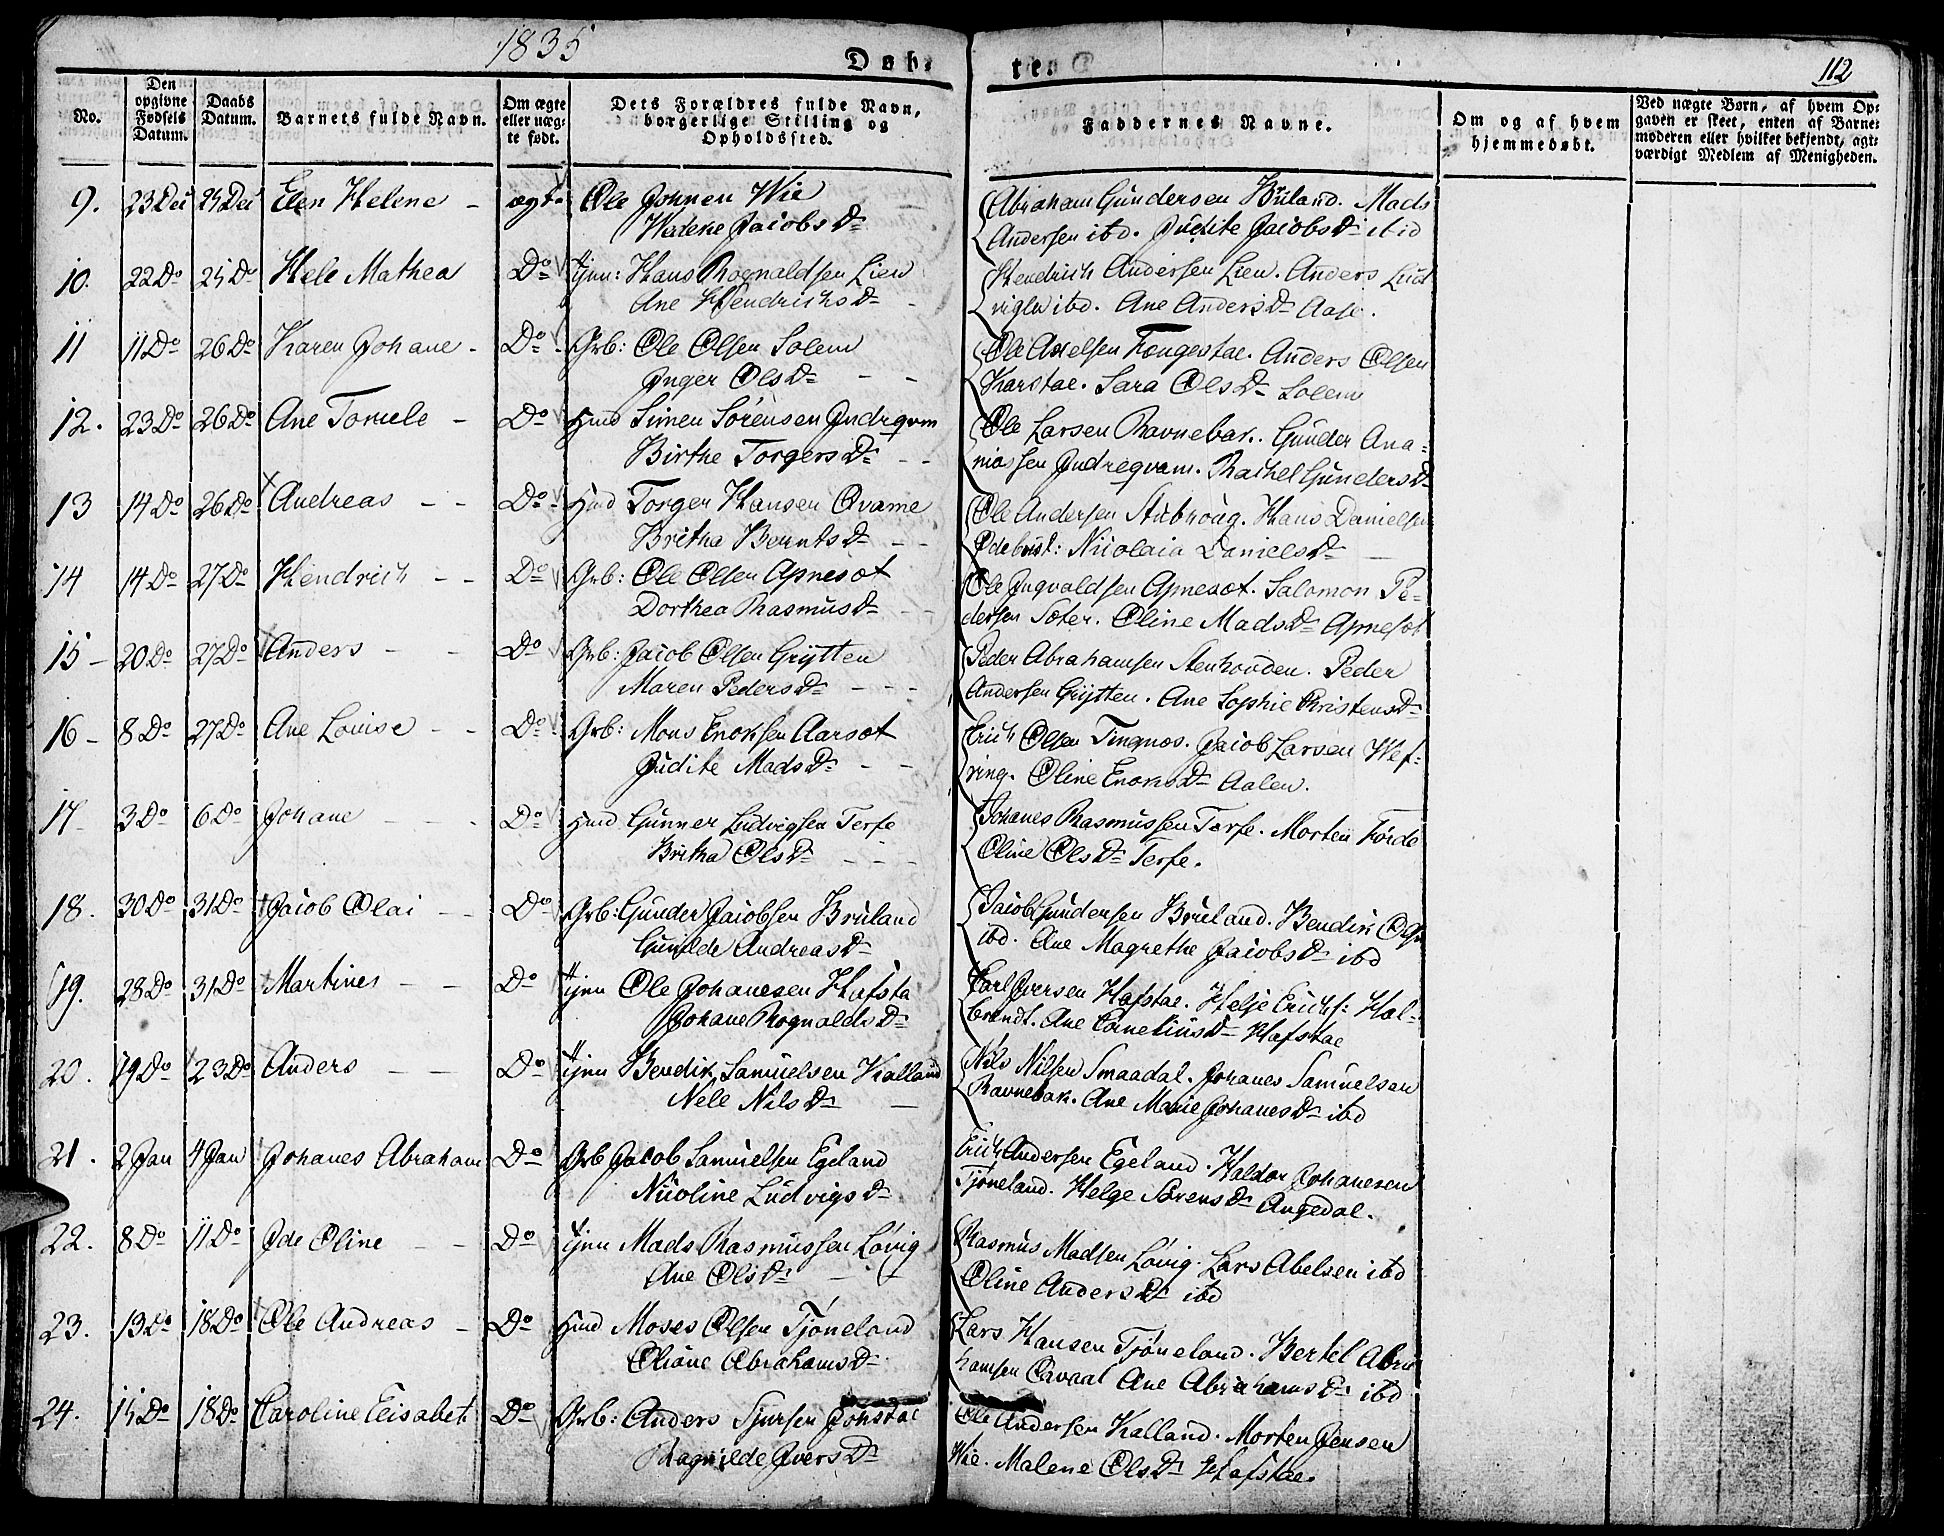 1835
Døb=
te
112
No.
Den opgivne Fødsels Datum.
Daabs Datum.
Barnets fulde Navn.
Om ægte eller uæg=te født.
Dets Forældres fulde Navn, borgerlige Stilling og Opholdssted.
Faddernes Navne.
Om og af hvem hjemmedøbt.
Ved uægte Børn, af hvem Op=gaven er skeet, enten af Barne=moderen eller hvilket bekjendt, agt=værdigt Medlem af Menigheden.
9. 23 Dei 25 Dei Elen Helene - ægt. Ole Johnen Wie
Helene Jacobs Dr
Abraham Gundersen Brüland. Mads
Andersen ibd. Judite Jacobs Dr ibid
10. 22 Do 25 Do Hele Mathea Do Tjnn: Hans Rognaldsen Lien
Ane Hendrichs Dr
Hendrich Andersen Lien. Anders Lud
vigsen ibd. Ane Anders Dr Aase.
11 11 Do 26 Do Karen Johane - Do Grb: Ole Olsen Solem
Inger Ols Dr
Ole Axelsen Fougestae. Anders Olsen
Karstae. Sara Ols Dr Solem
12. 23 Do 26 Do Ane Tomele - Do Hmd Simen Sørensen Indreqvm
Birthe Torgers Dr
Ole Larsen Ravnebar. Gunder Ana=
niassen Indreqvam. Rachel Gunders Dr
13 14 Do 26 Do Andreas - - Do Hmd Torger Hansen Qvame
Britha Bernts Dr
Ole Andersen Stubhoug. Hans Danielsen
Nicolaia Daniels Dr
14 14 Do 27 Do Hendrich - - Do Grb: Ole Olsen Apnesæt
Dorthea Rasmus Dr
Ole Ingvaldsen Apnesæt. Salomon Pe-
dersen Sæter. Oline Mads Dr Apnesæt
15 - 20 Do 27 Do Anders - - Do Grb: Jacob Olsen Grytten
Maren Peders Dr
Peder Abrahamsen Stenhovden. Peder
Andersen Grytten. Ane Sophie Kristens Dr
16 - 8 Do 27 Do Ane Louise - - Do Grb: Mons Enoksen Aarsæt
Judite Mads Dr
Erich Olsen Tingnæs. Jacob Larsen Wef=
ring. Oline Enoks Dr Aalen.
17 3 Do 6 Do Johane - - - Do Hmd Gunner Ludvigsen Terfe
Britha Ols Dr
Johanes Rasmussen Terfe. Morten Førde
Oline Ols Dr Terfe.
18. 30 Do 31 Do Jacob Olai - - Do Grb: Gunder Jacobsen Bruland
Gunilde Andreas Dr
Jacob Gundersen Bruland. Bendix Ols
ibd. Ane Magrethe Jacobs Dr ibd
19. 28 Do 31 Do Martines - - Do Tjnn Ole Johanesen Hafsta
Johane Rognalds Dr
Carl Iversen Hafstae. Helje Erichs: Hal-
brendt. Ane Cornelius Dr Hafstae
20. 19 Do 23 Do Anders - - Do Tjnn Bendix Samuelsen Kalland
Nele Nils Dr
Nils Nilsen Smaadal. Johanes Samuelsen
Ravnebak. Ane Marie Johanes Dr ibd
21. 2 Jan 4 Jan Johanes Abraham Do Grb Jacob Samuelsen Egeland
Nicoline Ludvigs Dr
Erich Andersen Egeland. Haldor Johanesen
Tjøneland. Helge Sørens Dr Angedal.
22. 8 Do 11 Do Ide Oline - - Do Tjnn Mads Rasmussen Løvig
Ane Ols Dr
Rasmus Madsen Løvig. Lars Abelsen ibd
Oline Anders Dr ibd
23. 13 Do 18 Do Ole Andreas - Do Hmd Moses Olsen Tjøneland
Oliane Abrahams Dr
Lars Hansen Tjøneland. Bertel Abra
hamsen Qavaal Ane Abrahams Dr ibd
24. 15 Do 18 Do Caroline Elisabet Do Grb: Anders Sjursen Jonstae
Ragnilde Ivers Dr
Ole Andersen Kalland. Morten Jensen
Wie. Malene Ols Dr Hafstae.